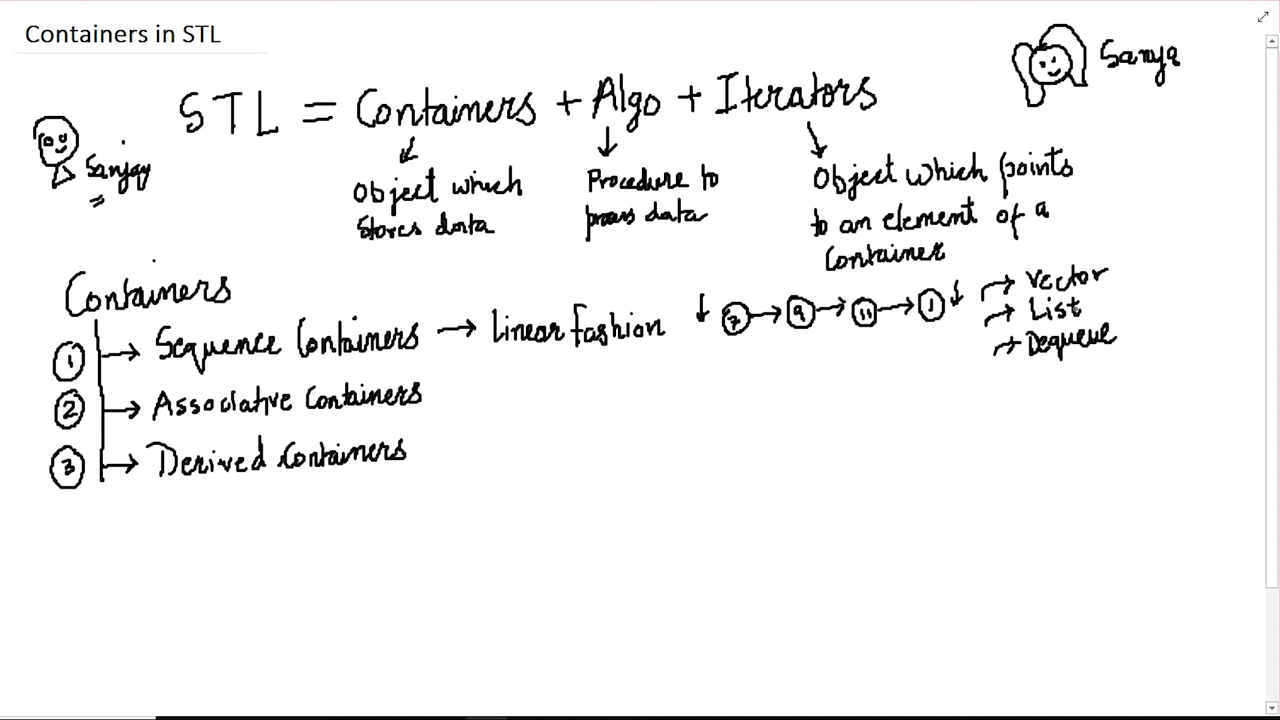 Containers in STL
Sanya
STL = Containers + Algo + Iterators
Sanjay
Object which
stores data
Procedure to
process data
Object which points
to an element of a
Container
Containers
1 Sequence Containers → Linear fashion
7 → 9 → 11 → 1
→ Vector
→ List
→ Dequeue
2 → Associative Containers
3 → Derived Containers